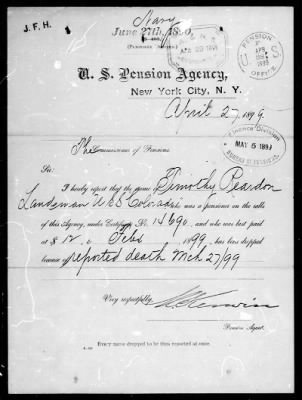 J. F. H.
Navy
June 27th, 1890.
(Pension Series.)
AGENT
APR 29 1899
PENSION
APR
1899
OFFICE
U. S. Pension Agency,
New York City, N. Y.
April 27, 1899.
Finance Division
MAY 5 1899
The Commissioner of Pensions.
Sir:
I hereby report that the name Timothy Reardon
Landsman U.S.S. Colorado was a pensioner on the rolls
of this Agency, under Certificate No. 14690, and who was last paid
at $ 12. to Feb 1899, has been dropped
because of reported death Mch 27/99
Very respectfully,
Pension Agent.
Every name dropped to be thus reported at once.